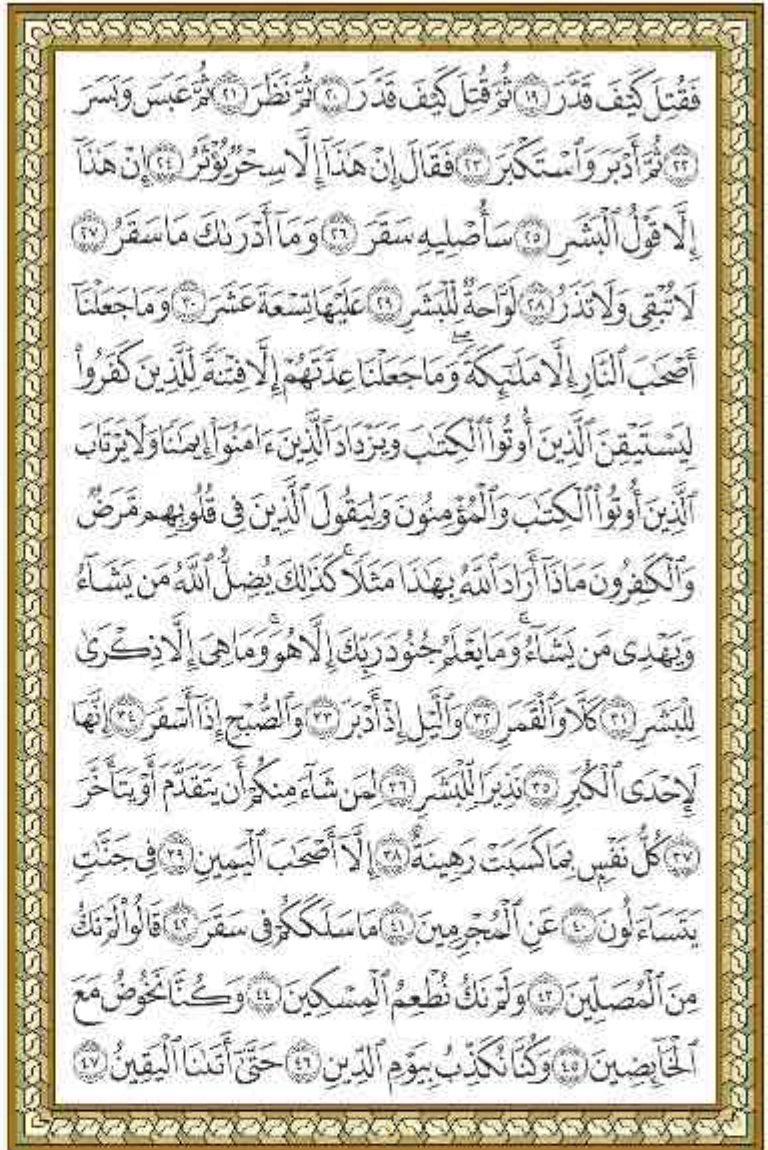 فَقُتِلَ كَيْفَ قَدَّرَ ١٩ ثُمَّ قُتِلَ كَيْفَ قَدَّرَ ٢٠ ثُمَّ نَظَرَ ٢١ ثُمَّ عَبَسَ وَبَسَرَ
٢٢ ثُمَّ أَدْبَرَ وَٱسْتَكْبَرَ ٢٣ فَقَالَ إِنْ هَٰذَآ إِلَّا سِحْرٌ يُؤْثَرُ ٢٤ إِنْ هَٰذَآ
إِلَّا قَوْلُ ٱلْبَشَرِ ٢٥ سَأُصْلِيهِ سَقَرَ ٢٦ وَمَآ أَدْرَىٰكَ مَا سَقَرُ ٢٧
لَا تُبْقِى وَلَا تَذَرُ ٢٨ لَوَّاحَةٌ لِّلْبَشَرِ ٢٩ عَلَيْهَا تِسْعَةَ عَشَرَ ٣٠ وَمَا جَعَلْنَآ
أَصْحَٰبَ ٱلنَّارِ إِلَّا مَلَٰٓئِكَةً ۙ وَمَا جَعَلْنَا عِدَّتَهُمْ إِلَّا فِتْنَةً لِّلَّذِينَ كَفَرُوا۟
لِيَسْتَيْقِنَ ٱلَّذِينَ أُوتُوا۟ ٱلْكِتَٰبَ وَيَزْدَادَ ٱلَّذِينَ ءَامَنُوٓا۟ إِيمَٰنًا وَلَا يَرْتَابَ
ٱلَّذِينَ أُوتُوا۟ ٱلْكِتَٰبَ وَٱلْمُؤْمِنُونَ وَلِيَقُولَ ٱلَّذِينَ فِى قُلُوبِهِم مَّرَضٌ
وَٱلْكَٰفِرُونَ مَاذَآ أَرَادَ ٱللَّهُ بِهَٰذَا مَثَلًا ۚ كَذَٰلِكَ يُضِلُّ ٱللَّهُ مَن يَشَآءُ
وَيَهْدِى مَن يَشَآءُ ۚ وَمَا يَعْلَمُ جُنُودَ رَبِّكَ إِلَّا هُوَ ۚ وَمَا هِىَ إِلَّا ذِكْرَىٰ
لِلْبَشَرِ ٣١ كَلَّا وَٱلْقَمَرِ ٣٢ وَٱلَّيْلِ إِذْ أَدْبَرَ ٣٣ وَٱلصُّبْحِ إِذَآ أَسْفَرَ ٣٤ إِنَّهَا
لَإِحْدَى ٱلْكُبَرِ ٣٥ نَذِيرًا لِّلْبَشَرِ ٣٦ لِمَن شَآءَ مِنكُمْ أَن يَتَقَدَّمَ أَوْ يَتَأَخَّرَ
٣٧ كُلُّ نَفْسٍۭ بِمَا كَسَبَتْ رَهِينَةٌ ٣٨ إِلَّآ أَصْحَٰبَ ٱلْيَمِينِ ٣٩ فِى جَنَّٰتٍ
يَتَسَآءَلُونَ ٤٠ عَنِ ٱلْمُجْرِمِينَ ٤١ مَا سَلَكَكُمْ فِى سَقَرَ ٤٢ قَالُوا۟ لَمْ نَكُ
مِنَ ٱلْمُصَلِّينَ ٤٣ وَلَمْ نَكُ نُطْعِمُ ٱلْمِسْكِينَ ٤٤ وَكُنَّا نَخُوضُ مَعَ
ٱلْخَآئِضِينَ ٤٥ وَكُنَّا نُكَذِّبُ بِيَوْمِ ٱلدِّينِ ٤٦ حَتَّىٰٓ أَتَىٰنَا ٱلْيَقِينُ ٤٧